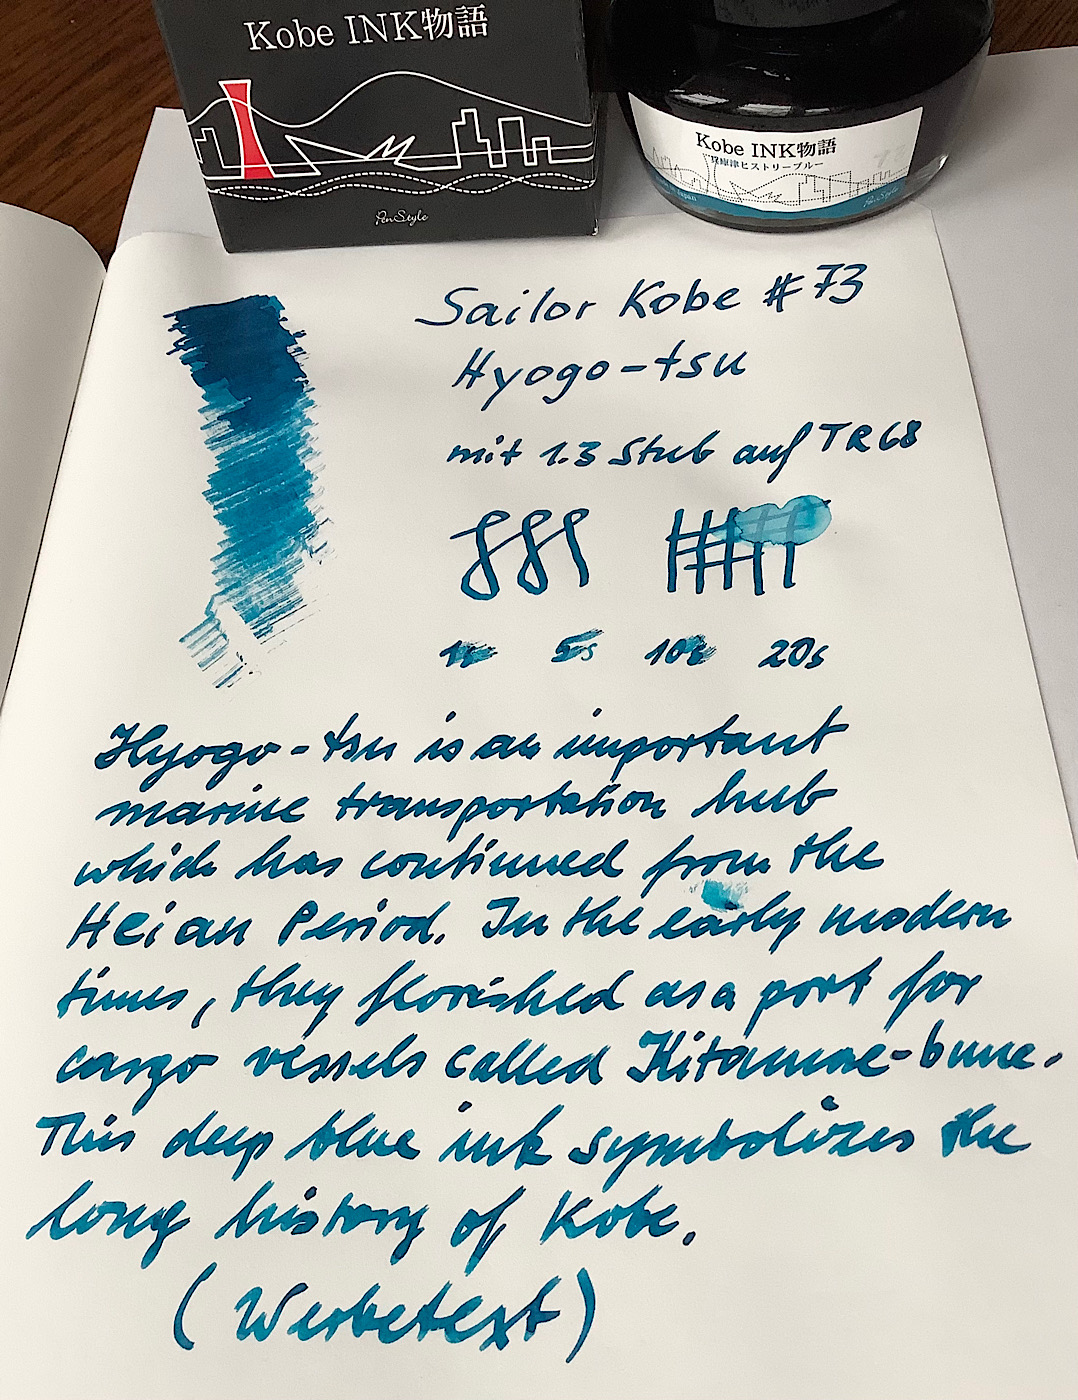 Kobe INK物語
PenStyle
Kobe INK物語
兵庫津ヒストリーブルー
73
Japan
PenStyle
Sailor Kobe #73
Hyogo-tsu
mit 1.3 Stub auf TR68
1s 5s 10s 20s
Hyogo-tsu is an important
marine transportation hub
which has continued from the
Heian Period. In the early modern
times, they florished as a port for
cargo vessels called Kitamae-bune.
This deep blue ink symbolizes the
long history of Kobe.
(Werbetext)